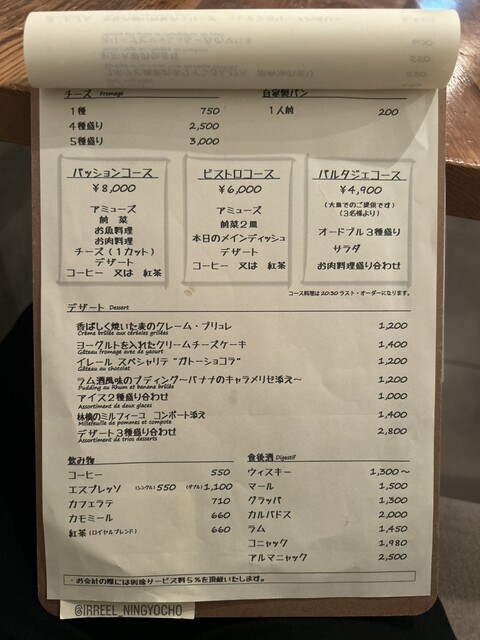 チーズ Fromage
1種 750
4種盛り 2,500
5種盛り 3,000
自家製パン
1人前 200
パッションコース
¥8,000
アミューズ
前菜
お魚料理
お肉料理
チーズ(1カット)
デザート
コーヒー 又は 紅茶
ビストロコース
¥6,000
アミューズ
前菜2皿
本日のメインディッシュ
デザート
コーヒー 又は 紅茶
パルタジェコース
¥4,900
(大皿でのご提供です)
(3名様より)
オードブル3種盛り
サラダ
お肉料理盛り合わせ
コース料理は20:30ラスト・オーダーになります。
デザート Dessert
香ばしく焼いた麦のクレーム・ブリュレ 1,200
Crème brûlée aux céréales grillées
ヨーグルトを入れたクリームチーズケーキ 1,400
Gâteau fromage avec de yaourt
イレール スペシャリテ "ガトーショコラ" 1,200
Gâteau au chocolat
ラム酒風味のプディング~バナナのキャラメリゼ添え~ 1,200
Pudding au Rhum et banana brûlée
アイス2種盛り合わせ 1,000
Assortiment de deux glaces
林檎のミルフィーユ コンポート添え 1,400
Millefeuille de pommes et compote
デザート3種盛り合わせ 2,800
Assortiment de trios desserts
飲み物
コーヒー 550
エスプレッソ (シングル)550 (ダブル)1,100
カフェラテ 710
カモミール 660
紅茶(ロイヤルブレンド) 660
食後酒 Digestif
ウィスキー 1,300~
マール 1,500
グラッパ 1,300
カルバドス 2,000
ラム 1,450
コニャック 1,980
アルマニャック 2,500
・お会計の際には別途サービス料5%を頂戴いたします。
@IRREEL_NINGYOCHO